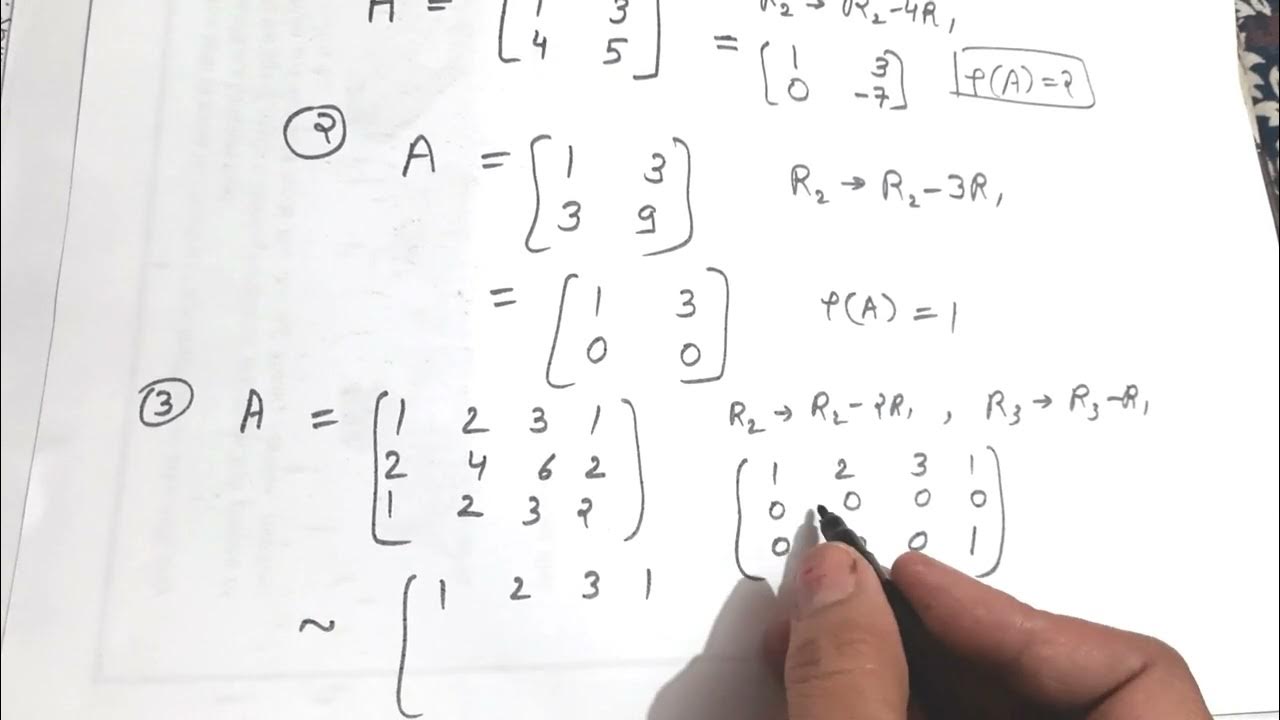 A = [1 3 R₂ → R₂-4R₁
4 5] = [1 3
0 -7] ρ(A) = 2
② A = [1 3
3 9] R₂ → R₂-3R₁
= [1 3
0 0] ρ(A) = 1
③ A = [1 2 3 1
2 4 6 2
1 2 3 2] R₂ → R₂-2R₁ , R₃ → R₃-R₁
[1 2 3 1
0 0 0 0
0 0 1]
~ [1 2 3 1